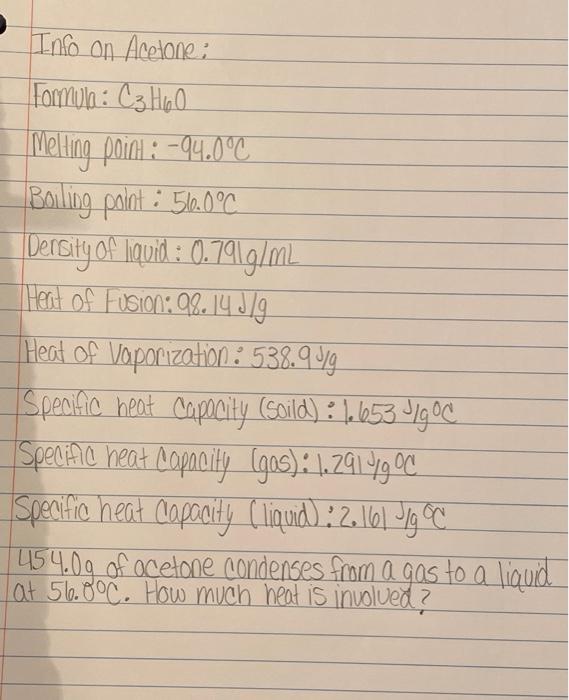 Info on Acetone:
Formula: C3H6O
Melting point: -94.0°C
Boiling point: 56.0°C
Density of liquid: 0.791g/mL
Heat of Fusion: 98.14 J/g
Heat of Vaporization: 538.9 J/g
Specific heat capacity (soild): 1.653 J/g°C
Specific heat capacity (gas): 1.291 J/g°C
Specific heat capacity (liquid): 2.161 J/g°C
454.0g of acetone condenses from a gas to a liquid
at 56.0°C. How much heat is involved?